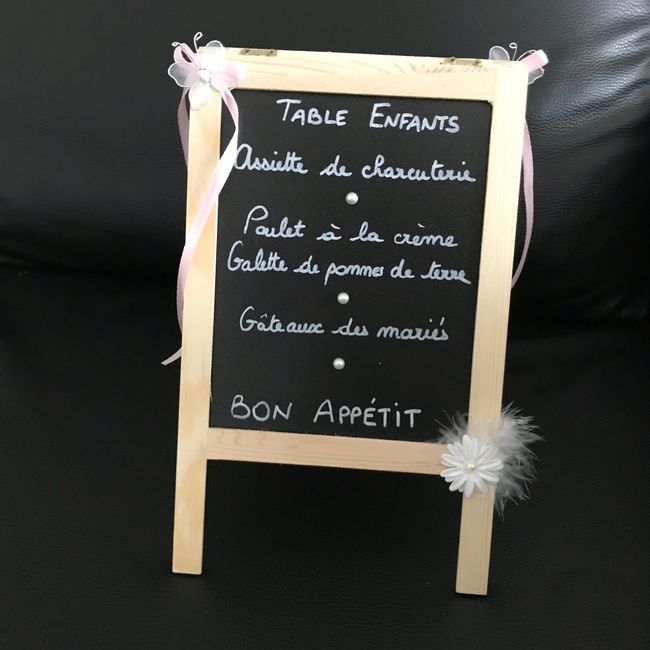 TABLE ENFANTS
Assiette de charcuterie
Poulet à la crème
Galette de pommes de terre
Gâteaux des mariés
BON APPÉTIT